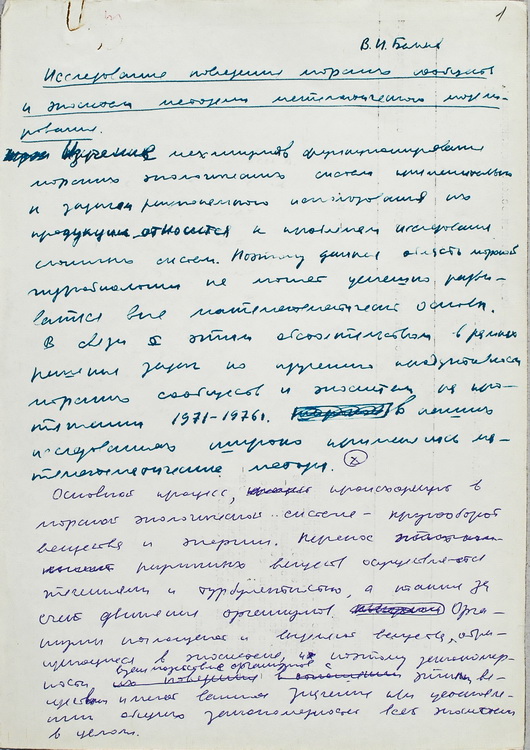 1
В.И. Беляев
Исследование поведения морских сообществ
и экосистем методами математического модели-
рования.
Изучение механизмов функционирования
морских экологических систем применительно
к задачам рационального использования их
продукции относится к проблемам исследования
сложных систем. Поэтому данная область морской
гидробиологии не может успешно разви-
ваться вне математической основы.
В связи с этим обстоятельством в рамках
решения задач по изучению продуктивности
морских сообществ и экосистем на про-
тяжении 1971-1976г. в наших
исследованиях широко применялись ма-
тематические методы.
Основной процесс, происходящий в
морской экологической системе - круговорот
вещества и энергии. Перенос
различных веществ осуществляется
течениями и турбулентностью, а также за
счет движения организмов. Орга-
низмы поглощают и выделяют вещества, обра-
щающиеся в экосистеме, и поэтому закономер-
ности взаимодействия организмов с этими ве-
ществами имеют важное значение для установле-
ния общих закономерностей всей экосистемы
в целом.